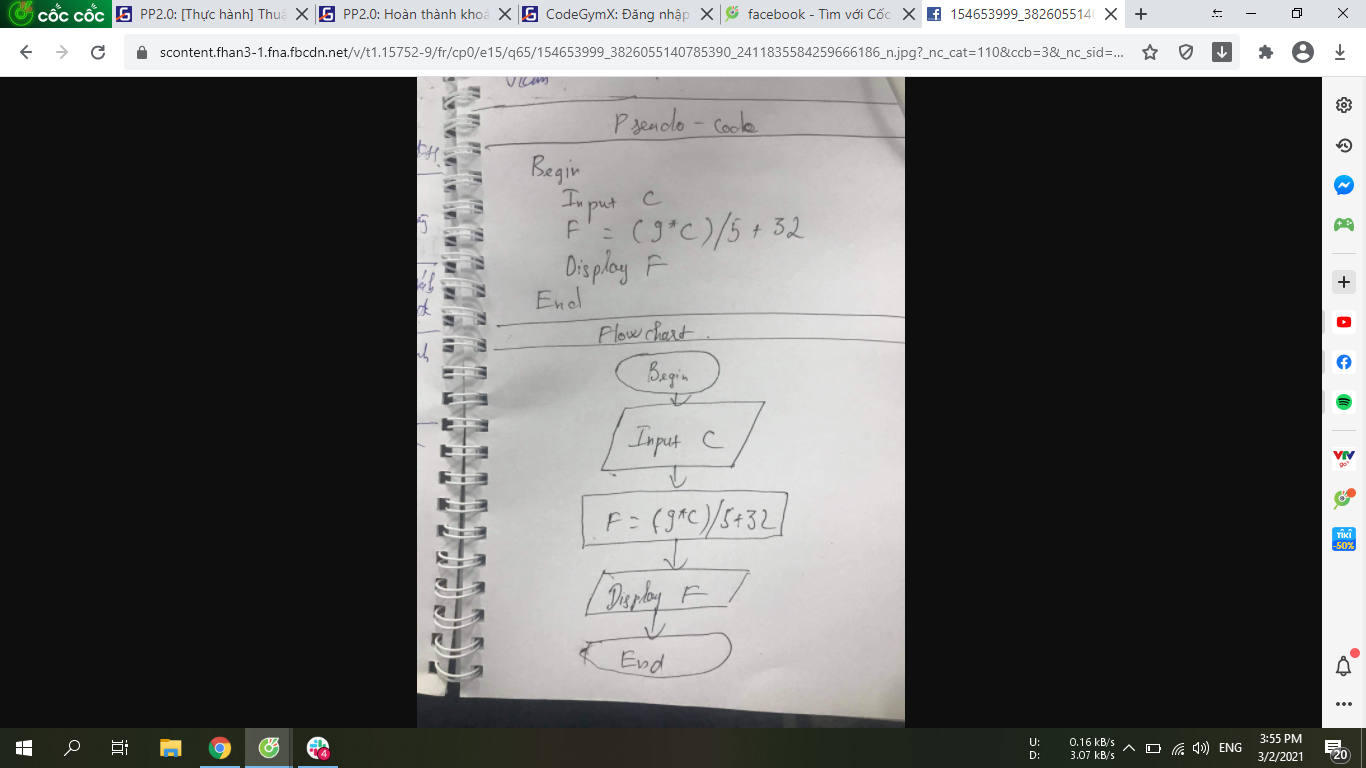 cốc cốc
PP2.0: [Thực hành] Thuậ
PP2.0: Hoàn thành khoá
CodeGymX: Đăng nhập
facebook - Tìm với Cốc
154653999_3826055140
scontent.fhan3-1.fna.fbcdn.net/v/t1.15752-9/fr/cp0/e15/q65/154653999_3826055140785390_2411835584259666186_n.jpg?_nc_cat=110&ccb=3&_nc_sid=...
Pseudo - Code
Begin
Input C
F = (9*C)/5 + 32
Display F
End
Flowchart.
Begin
Input C
F = (9*C)/5+32
Display F
End
VTV
go
TIKI
-50%
4
U: 0.16 kB/s
D: 3.07 kB/s
ENG
3:55 PM
3/2/2021
20